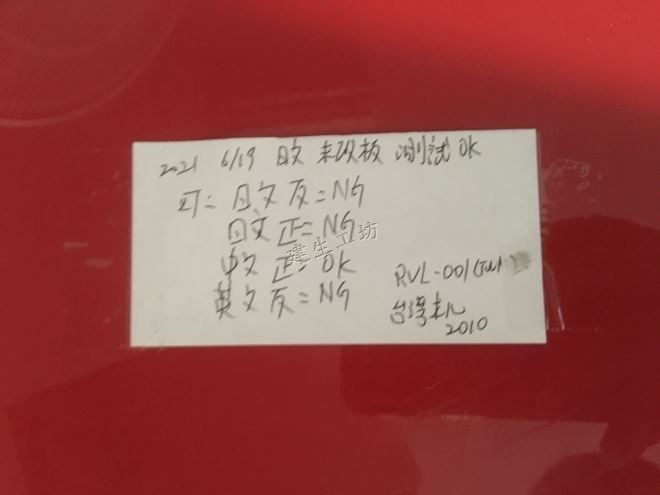 2021 6/19 日文 未改板 測試OK
可= 日文 反=NG
日文 正=NG
中文 正=OK
英文 反=NG
RVL-001
台灣
2010
建生工坊